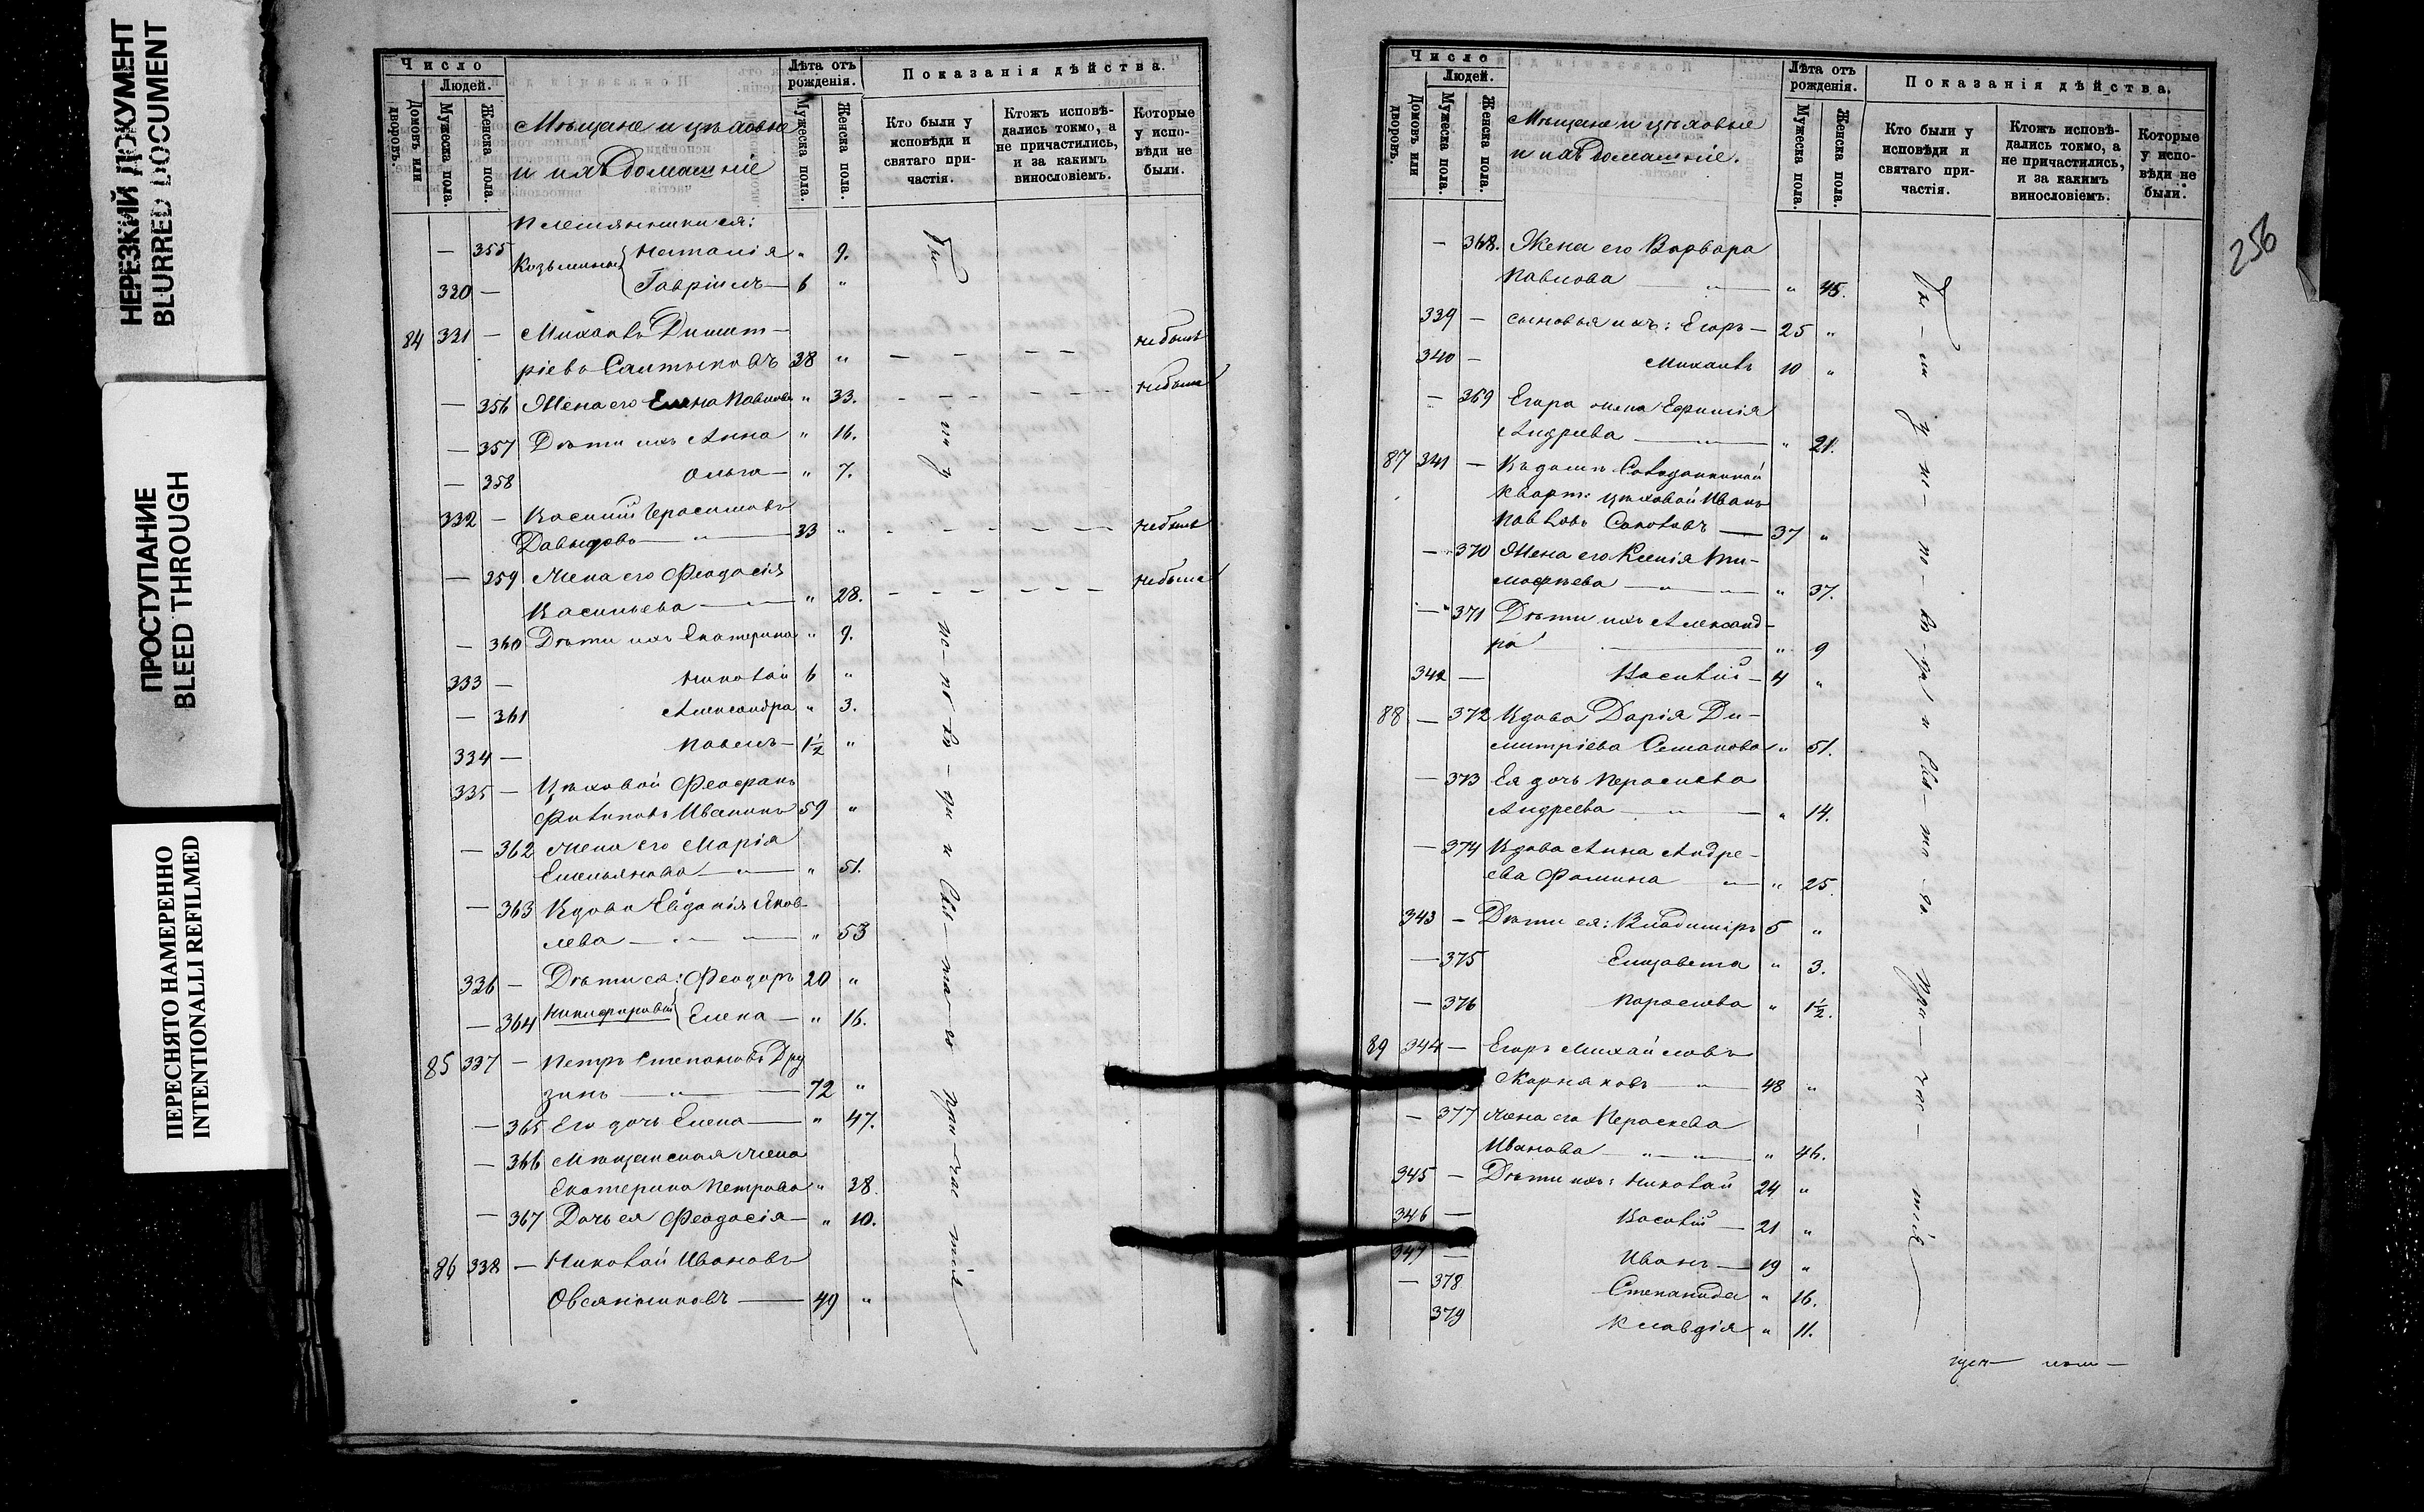 НЕРЕЗКИЙ ДОКУМЕНТ
BLURRED DOCUMENT
ПРОСТУПАНИЕ
BLEED THROUGH
ПЕРЕСНЯТО НАМЕРЕННО
INTENTIONALLI REFILMED
Число
Людей.
Домовъ или дворовъ.
Мужеска пола.
Женска пола.
Мѣщане и цѣховые
и ихъ домашніе
Лѣта отъ рожденія.
Мужеска пола.
Женска пола.
Показанія дѣйства.
Кто были у исповѣди и святаго причастія.
Ктожъ исповѣдались токмо, а не причастились, и за какимъ винословіемъ.
Которые у исповѣди не были.
Племянники ея:
— 355 Козьмины { Наталія " 9.
330 — Гавріилъ — 6 "
84 331 — Михаилъ Димит-
ріевъ Салтыковъ 38 " — — — — не былъ
— 356 Жена его Елена Павлова " 33. — — — — — не была
— 357 Дѣти ихъ Анна " 16.
— 358 Ольга — " 7.
332 — Василій Герасимовъ
Давыдовъ — " — 33 " — — — — — не былъ
— 359 Жена его Феодосія
Васильева — " — " 28. — — — — — не была
— 360 Дѣти ихъ Екатерина " 9.
333 — Николай 6 "
— 361 Александра " 3.
334 — Павелъ — 1½ "
335 — Цѣховой Феофанъ
Филиповъ Иванинъ 59 "
— 362 Жена его Марія
Емельянова — " — " 51.
— 363 Вдова Евдокія Яков-
лева — " — " 53
336 — Дѣти ея: Феодоръ 20 "
— 364 Никифоровы { Елена — " 16.
85 337 — Петръ Степановъ Дру
зинъ — " — 72 "
— 365 Его дочь Елена — " 47.
— 366 Мѣщанская жена
Екатерина Петрова " 38.
— 367 Дочь ея Феодосія — " 10.
86 338 — Николай Ивановъ
Овсянниковъ — 49 "
Число
Людей.
Домовъ или дворовъ.
Мужеска пола.
Женска пола.
Мѣщане и цѣховые
и ихъ домашніе.
Лѣта отъ рожденія.
Мужеска пола.
Женска пола.
Показанія дѣйства.
Кто были у исповѣди и святаго причастія.
Ктожъ исповѣдались токмо, а не причастились, и за какимъ винословіемъ.
Которые у исповѣди не были.
256
— 368. Жена его Варвара
Павлова — " — " 45.
339 — сыновья ихъ: Егоръ — 25 "
340 — Михаилъ 10 "
— 369 Егора жена Ефимія
Андреева — " — " 21.
87 341 — Въ домѣ
кварт: цѣховой Иванъ
Павловъ Соколовъ — 37 "
— 370 Жена его Ксенія Ти-
мофѣева — " — " 37.
— 371 Дѣти ихъ Александ-
ра — " 9
342 — Василій — 4 "
88 — 372 Вдова Дарія Ди-
митріева " 51.
— 373 Ея дочь Параскева
Андреева — " — " 14.
— 374 Вдова Анна Андре-
ева Фомина " — " 25.
343 — Дѣти ея: Владиміръ 5 "
— 375 Елизавета " 3.
— 376 Параскева " 1½.
89 344 — Егоръ Михайловъ
Карнаховъ — " — 48 "
— 377 Жена его Параскева
Иванова — " — " — " 46.
345 — Дѣти ихъ: Николай 24 "
346 — Василій — 21 "
347 — Иванъ — 19 "
— 378 Степанида " 16.
379 Клавдія " 11.